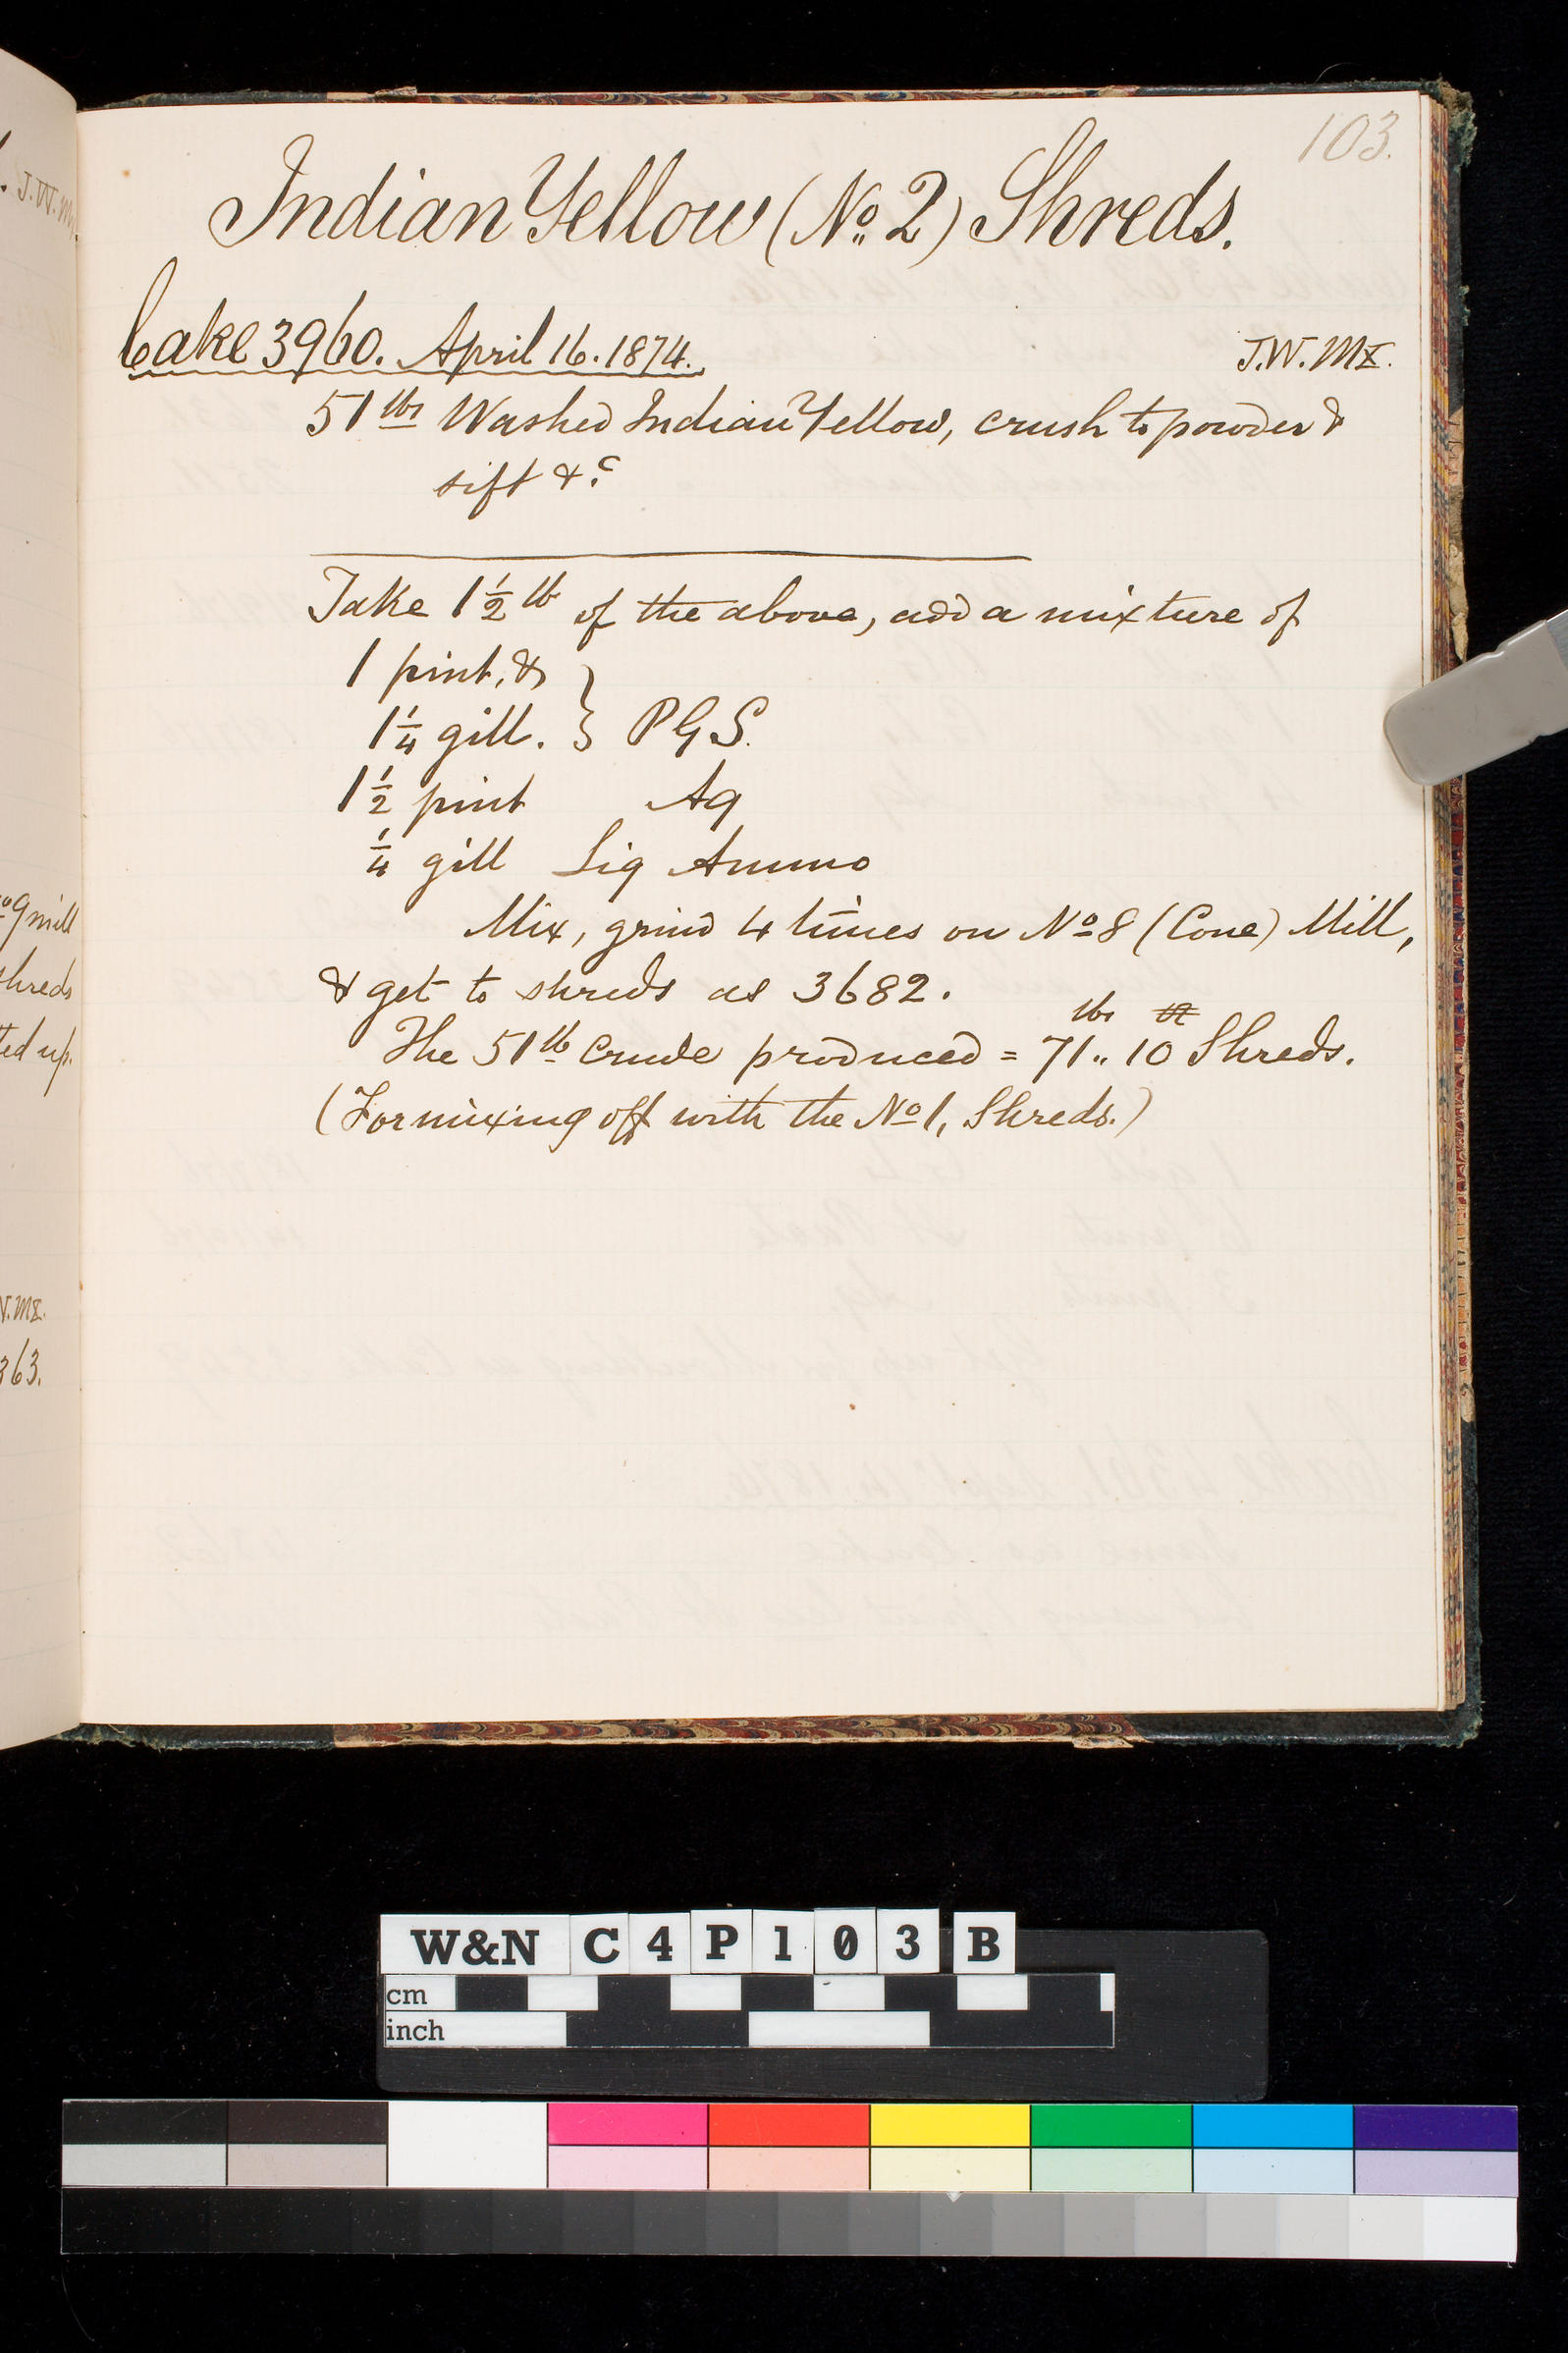 103.
Indian Yellow (No. 2) Shreds.
Cake 3960. April 16. 1874. J.W. MX.
51 lbs Washed Indian Yellow, crush to powder &
sift &c
Take 1 1/2 lb of the above, add a mixture of
1 pint, &
1 1/4 gill. } P G S.
1 1/2 pint Aq
1/4 gill Liq Ammo
Mix, grind 4 times on No 8 (Cone) Mill,
& get to shreds as 3682.
The 51 lb Crude produced = 71 lbs .. 10 Shreds.
(For mixing off with the No 1, Shreds.)
J.W.
No 9 mill
shreds
ted up.
W. MX.
363.
W&N C4P103 B
cm
inch